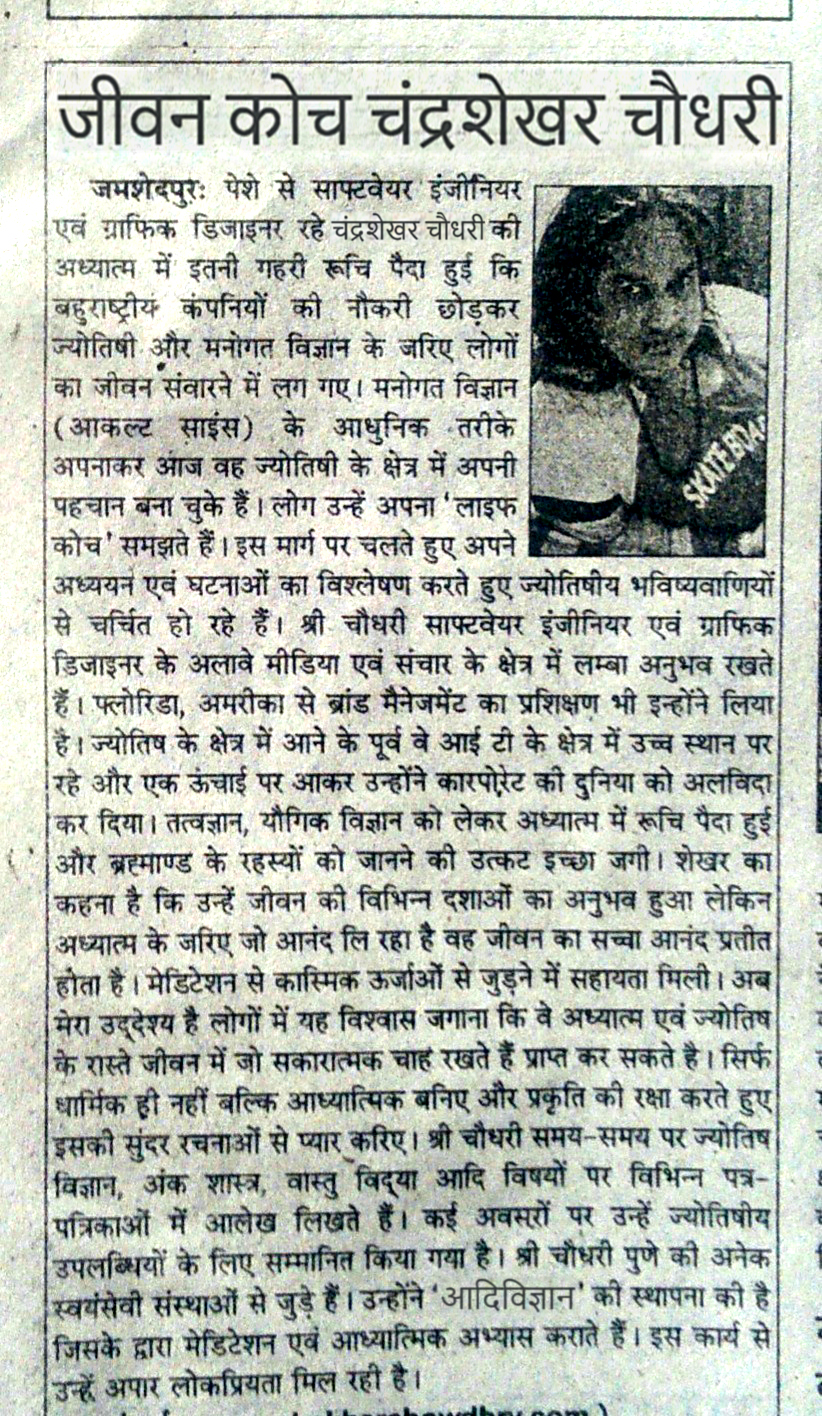 जीवन कोच चंद्रशेखर चौधरी
जमशेदपुरः पेशे से साफ्टवेयर इंजीनियर
एवं ग्राफिक डिजाइनर रहे चंद्रशेखर चौधरी की
अध्यात्म में इतनी गहरी रूचि पैदा हुई कि
बहुराष्ट्रीय कंपनियों की नौकरी छोड़कर
ज्योतिषी और मनोगत विज्ञान के जरिए लोगों
का जीवन संवारने में लग गए। मनोगत विज्ञान
(आकल्ट साइंस) के आधुनिक तरीके
अपनाकर आज वह ज्योतिषी के क्षेत्र में अपनी
पहचान बना चुके हैं। लोग उन्हें अपना 'लाइफ
कोच' समझते हैं। इस मार्ग पर चलते हुए अपने
SKATE BOA
अध्ययन एवं घटनाओं का विश्लेषण करते हुए ज्योतिषीय भविष्यवाणियों
से चर्चित हो रहे हैं। श्री चौधरी साफ्टवेयर इंजीनियर एवं ग्राफिक
डिजाइनर के अलावे मीडिया एवं संचार के क्षेत्र में लम्बा अनुभव रखते
हैं। फ्लोरिडा, अमरीका से ब्रांड मैनेजमेंट का प्रशिक्षण भी इन्होंने लिया
है। ज्योतिष के क्षेत्र में आने के पूर्व वे आई टी के क्षेत्र में उच्च स्थान पर
रहे और एक ऊंचाई पर आकर उन्होंने कारपोरेट की दुनिया को अलविदा
कर दिया। तत्वज्ञान, यौगिक विज्ञान को लेकर अध्यात्म में रूचि पैदा हुई
और ब्रह्माण्ड के रहस्यों को जानने की उत्कट इच्छा जगी। शेखर का
कहना है कि उन्हें जीवन की विभिन्न दशाओं का अनुभव हुआ लेकिन
अध्यात्म के जरिए जो आनंद लि रहा है वह जीवन का सच्चा आनंद प्रतीत
होता है। मेडिटेशन से कास्मिक ऊर्जाओं से जुड़ने में सहायता मिली। अब
मेरा उद्देश्य है लोगों में यह विश्वास जगाना कि वे अध्यात्म एवं ज्योतिष
के रास्ते जीवन में जो सकारात्मक चाह रखते हैं प्राप्त कर सकते है। सिर्फ
धार्मिक ही नहीं बल्कि आध्यात्मिक बनिए और प्रकृति की रक्षा करते हुए
इसकी सुंदर रचनाओं से प्यार करिए। श्री चौधरी समय-समय पर ज्योतिष
विज्ञान, अंक शास्त्र, वास्तु विद्या आदि विषयों पर विभिन्न पत्र-
पत्रिकाओं में आलेख लिखते हैं। कई अवसरों पर उन्हें ज्योतिषीय
उपलब्धियों के लिए सम्मानित किया गया है। श्री चौधरी पुणे की अनेक
स्वयंसेवी संस्थाओं से जुड़े हैं। उन्होंने 'आदिविज्ञान' की स्थापना की है
जिसके द्वारा मेडिटेशन एवं आध्यात्मिक अभ्यास कराते हैं। इस कार्य से
उन्हें अपार लोकप्रियता मिल रही है।